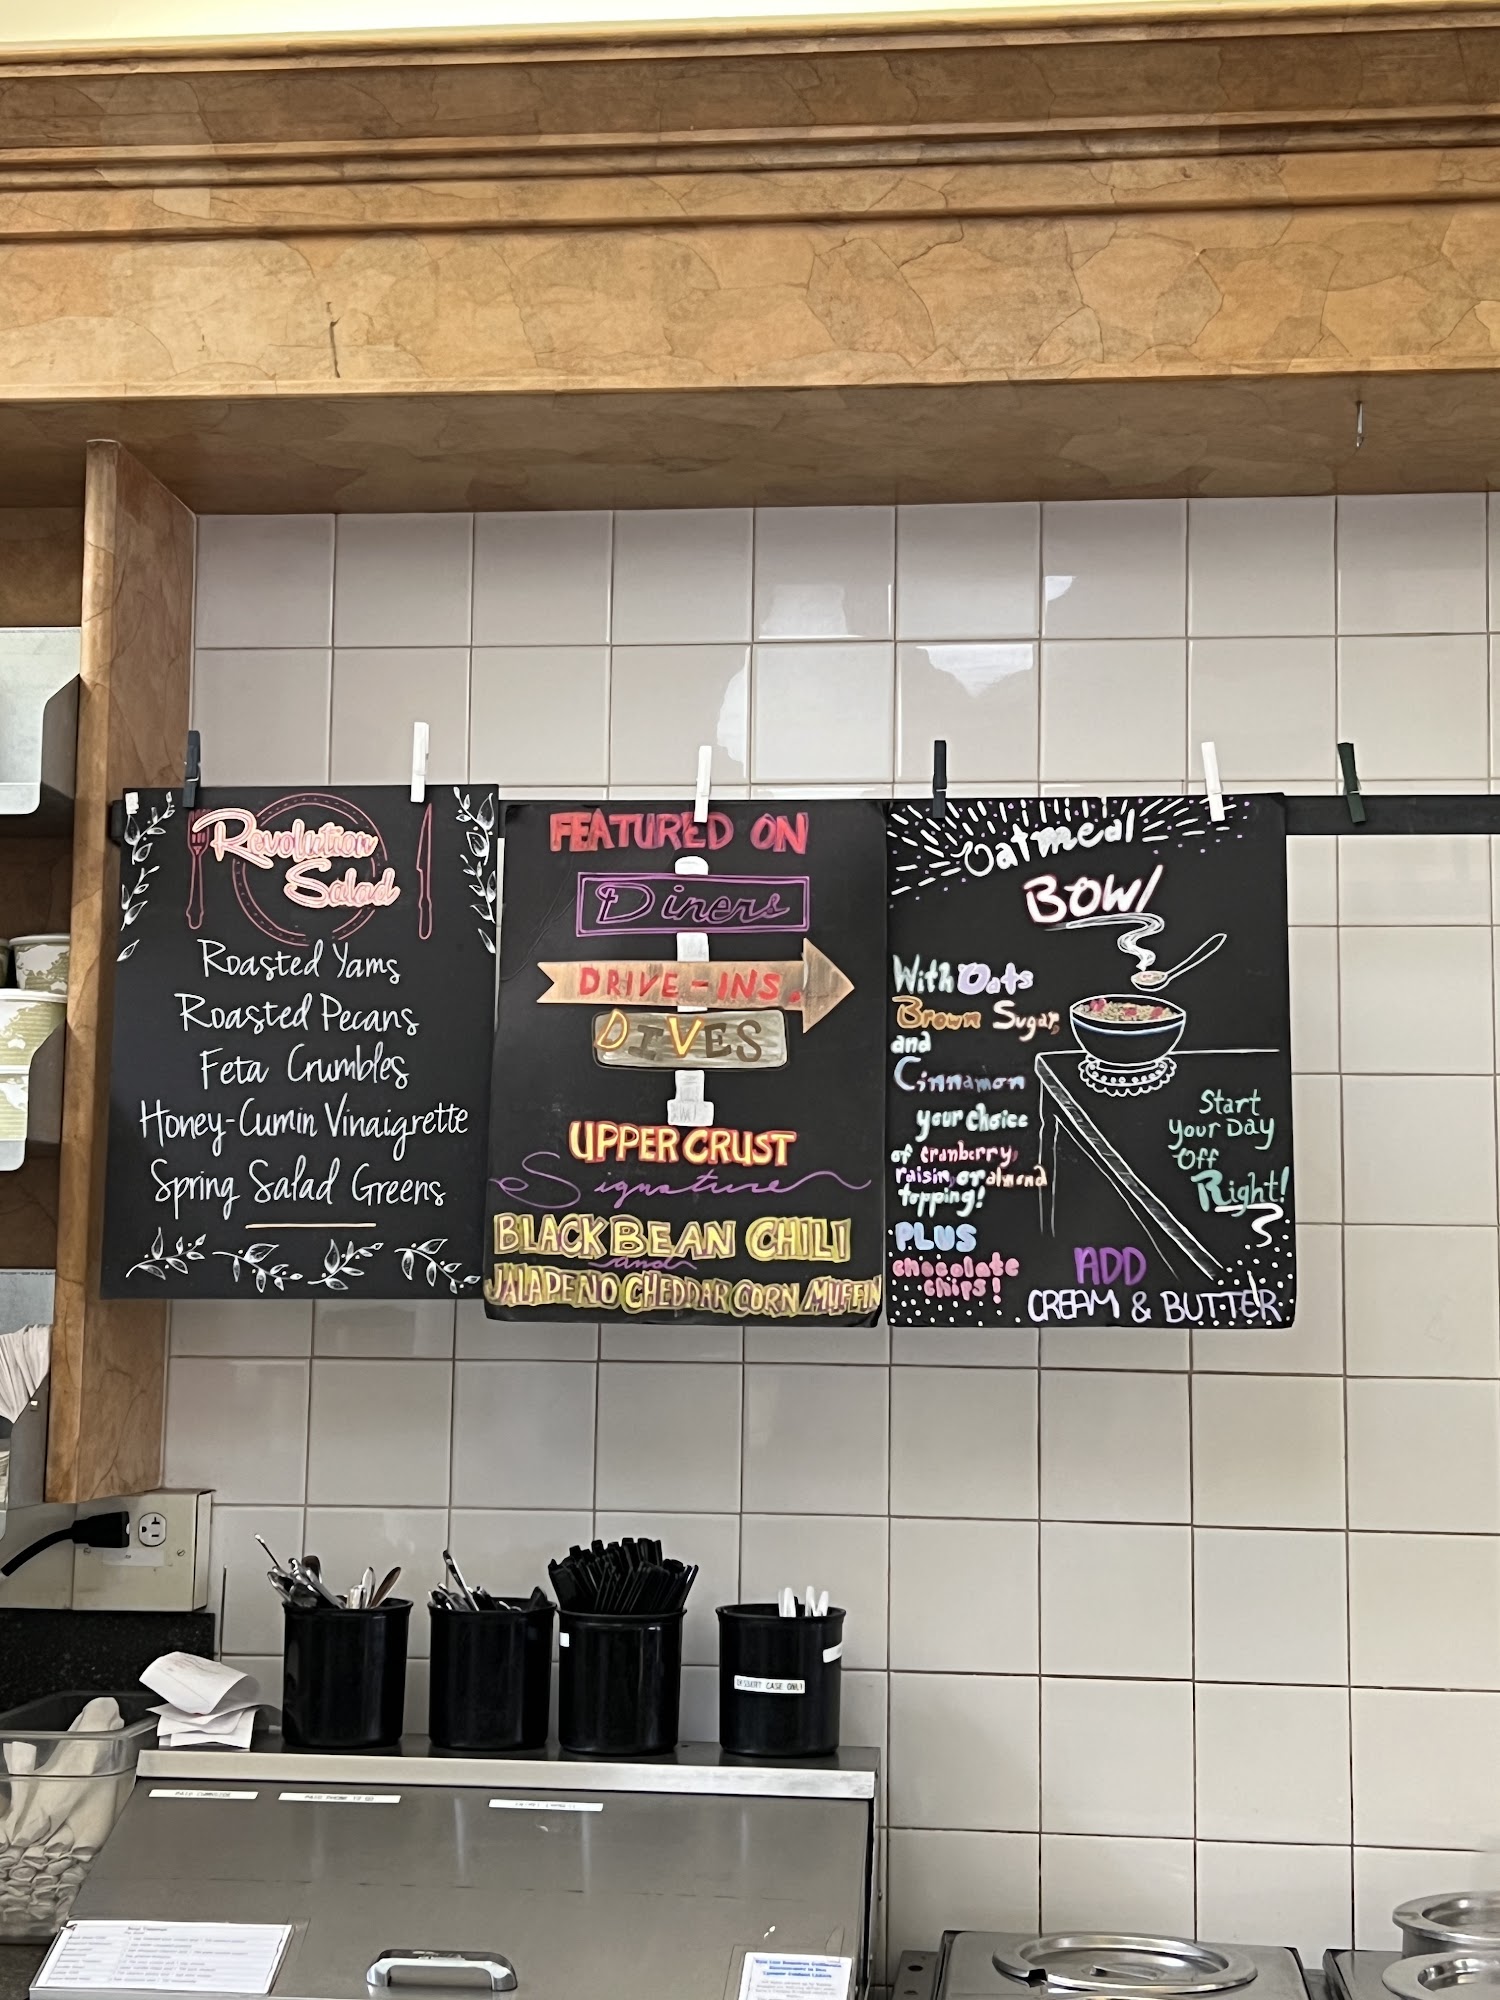 Revolution
Salad
Roasted Yams
Roasted Pecans
Feta Crumbles
Honey-Cumin Vinaigrette
Spring Salad Greens
FEATURED ON
Diners
DRIVE-INS.
DIVES
UPPER CRUST
Signature
BLACK BEAN CHILI
and
JALAPENO CHEDDAR CORN MUFFIN
Oatmeal
BOWl
With Oats
Brown Sugar,
and
Cinnamon
your choice
of cranberry,
raisin, or almond
topping!
PLUS
chocolate
chips!
Start
your Day
Off
Right!
ADD
CREAM & BUTTER
DESSERT CASE ONLY